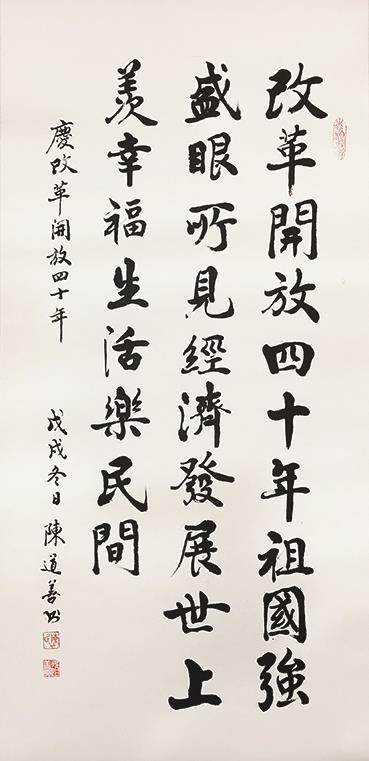 改革開放四十年祖國強
盛眼所見經濟發展世上
羨幸福生活樂民間
慶改革開放四十年
戊戌冬日 陳道善書